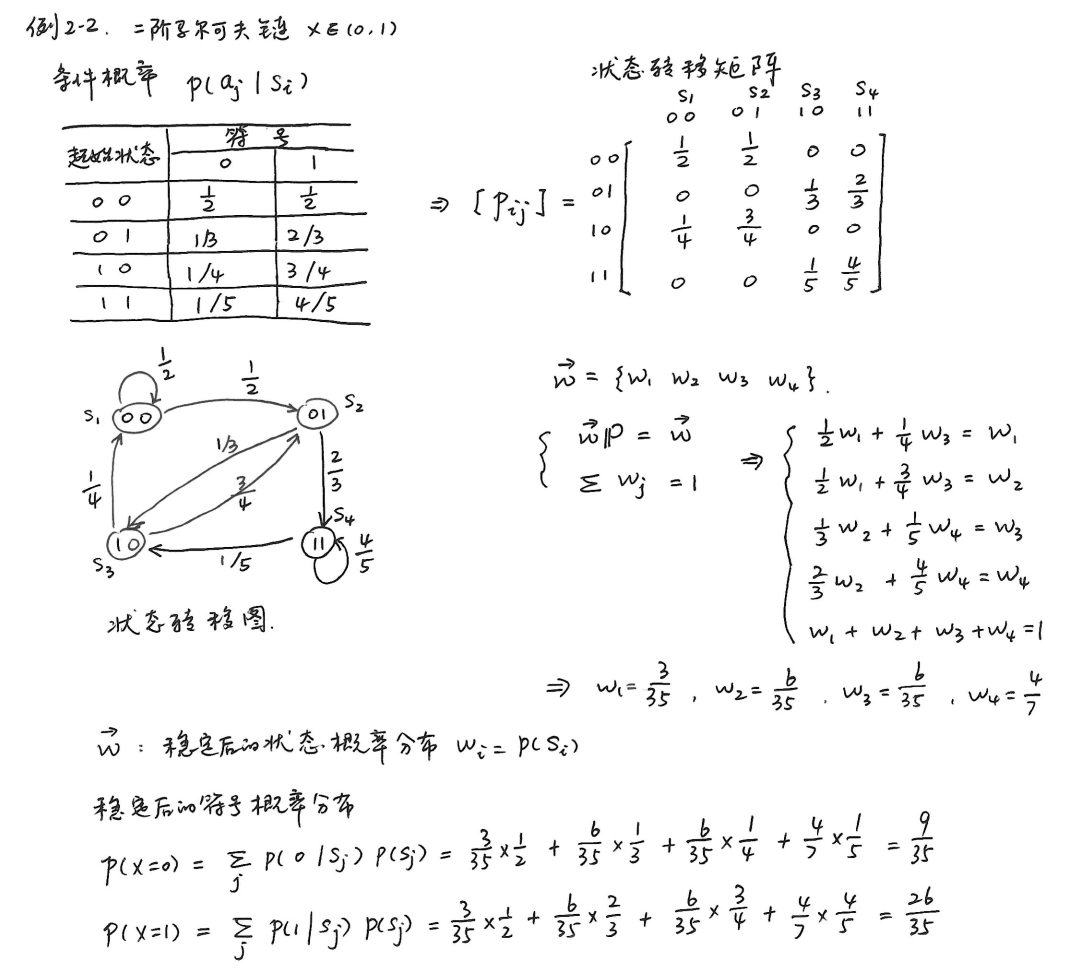 例2-2. 二阶马尔可夫链 X∈(0,1)
条件概率 p(aj|si)
符号
起始状态 0 1
00 1/2 1/2
01 1/3 2/3
10 1/4 3/4
11 1/5 4/5
状态转移矩阵
S1 S2 S3 S4
00 01 10 11
00 1/2 1/2 0 0
⇒ [Pij] = 01 0 0 1/3 2/3
10 1/4 3/4 0 0
11 0 0 1/5 4/5
1/2
1/2
S1 00 01 S2
1/3
1/4 3/4 2/3
S4
10 11 4/5
S3 1/5
状态转移图.
w⃗ = {w1 w2 w3 w4}.
{ w⃗ℙ = w⃗
Σ wj = 1
⇒ { 1/2 w1 + 1/4 w3 = w1
1/2 w1 + 3/4 w3 = w2
1/3 w2 + 1/5 w4 = w3
2/3 w2 + 4/5 w4 = w4
w1 + w2 + w3 + w4 = 1
⇒ w1 = 3/35 , w2 = 6/35 . w3 = 6/35 , w4 = 4/7
w⃗ : 稳定后的状态概率分布 wi = p(si)
稳定后的符号概率分布
p(x=0) = Σj p(0|sj) p(sj) = 3/35 × 1/2 + 6/35 × 1/3 + 6/35 × 1/4 + 4/7 × 1/5 = 9/35
p(x=1) = Σj p(1|sj) p(sj) = 3/35 × 1/2 + 6/35 × 2/3 + 6/35 × 3/4 + 4/7 × 4/5 = 26/35